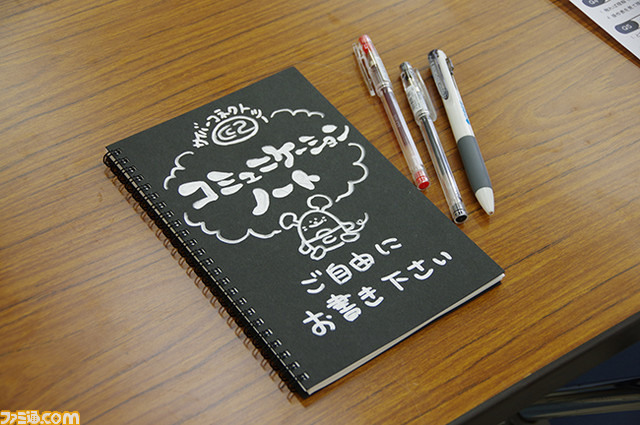 サイバーコネクトツー
CC2
コミュニケーション
ノート
ご自由に
お書き下さい
ファミ通.com